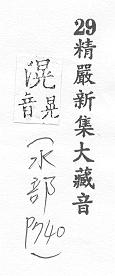 29精嚴新集大藏音
滉
音晃
(水部
P740)